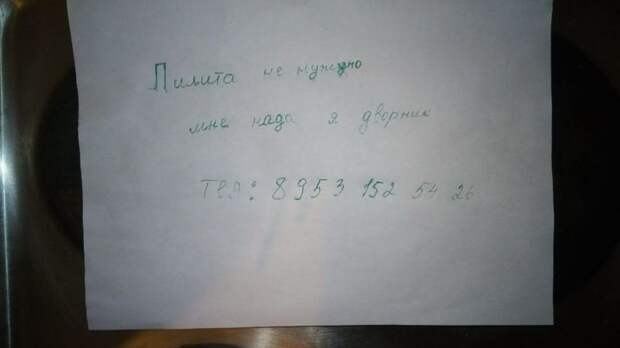 Пилита не нужно
мне нада я дворник
тел: 8 953 152 54 26